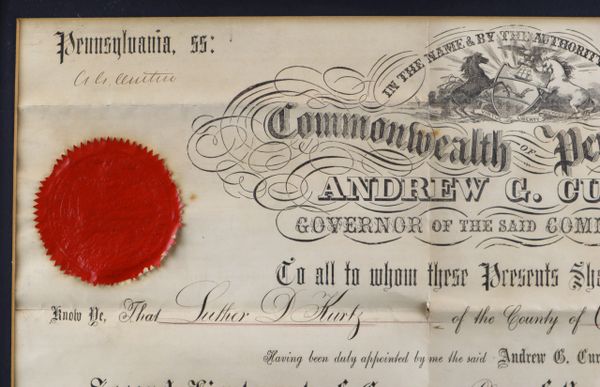 Pennsylvania, ss:
A. G. Curtin
IN THE NAME & BY THE AUTHORITY
Commonwealth OF Pe
ANDREW G. CU
GOVERNOR OF THE SAID COMM
To all to whom these Presents Sha
Know Ye, That Luther D Kurtz of the County of
Having been duly appointed by me the said Andrew G. Cur